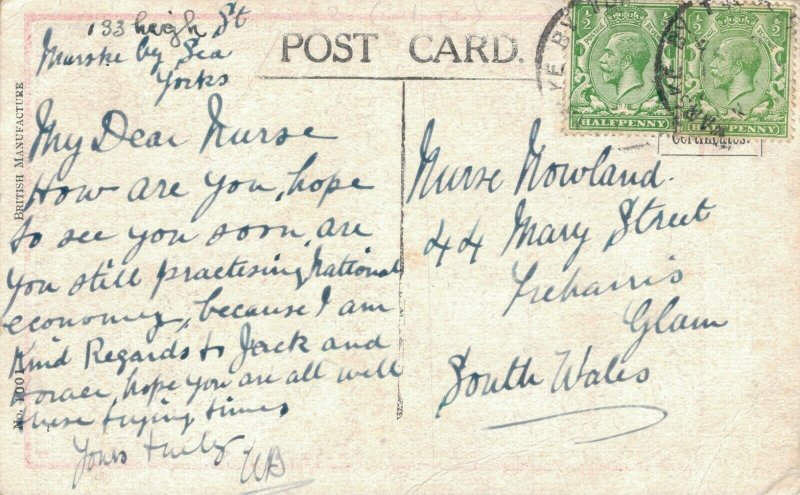 133 heigh St
Marske by Sea
Yorks
POST CARD.
BRITISH MANUFACTURE
No. 1001
My Dear Nurse
How are you, hope
to see you soon, are
you still practesing National
economy, because I am
Kind Regards to Jack and
Horace, hope you are all well
these trying times
Yours truly
Nurse Nowland.
44 Mary Street
Treharris
Glam
South Wales
HALFPENNY
HALFPENNY
Certificates.